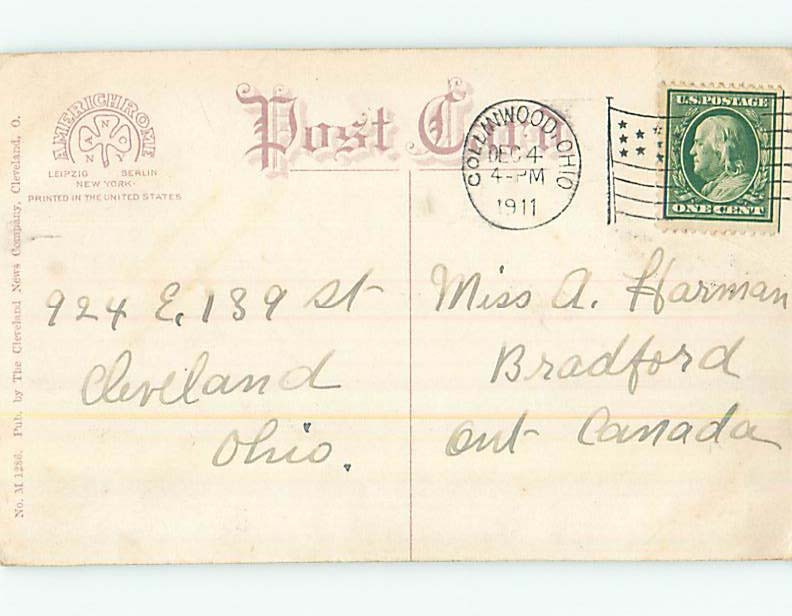 AMERICHROME
A N C N
LEIPZIG BERLIN
NEW YORK
PRINTED IN THE UNITED STATES
Post Card
COLLINWOOD, OHIO
DEC 4
4-PM
1911
U.S. POSTAGE
ONE CENT
No. M 1286. Pub. by The Cleveland News Company, Cleveland, O.
924 E. 139 St
Cleveland
Ohio.
Miss A. Harman
Bradford
Ont Canada